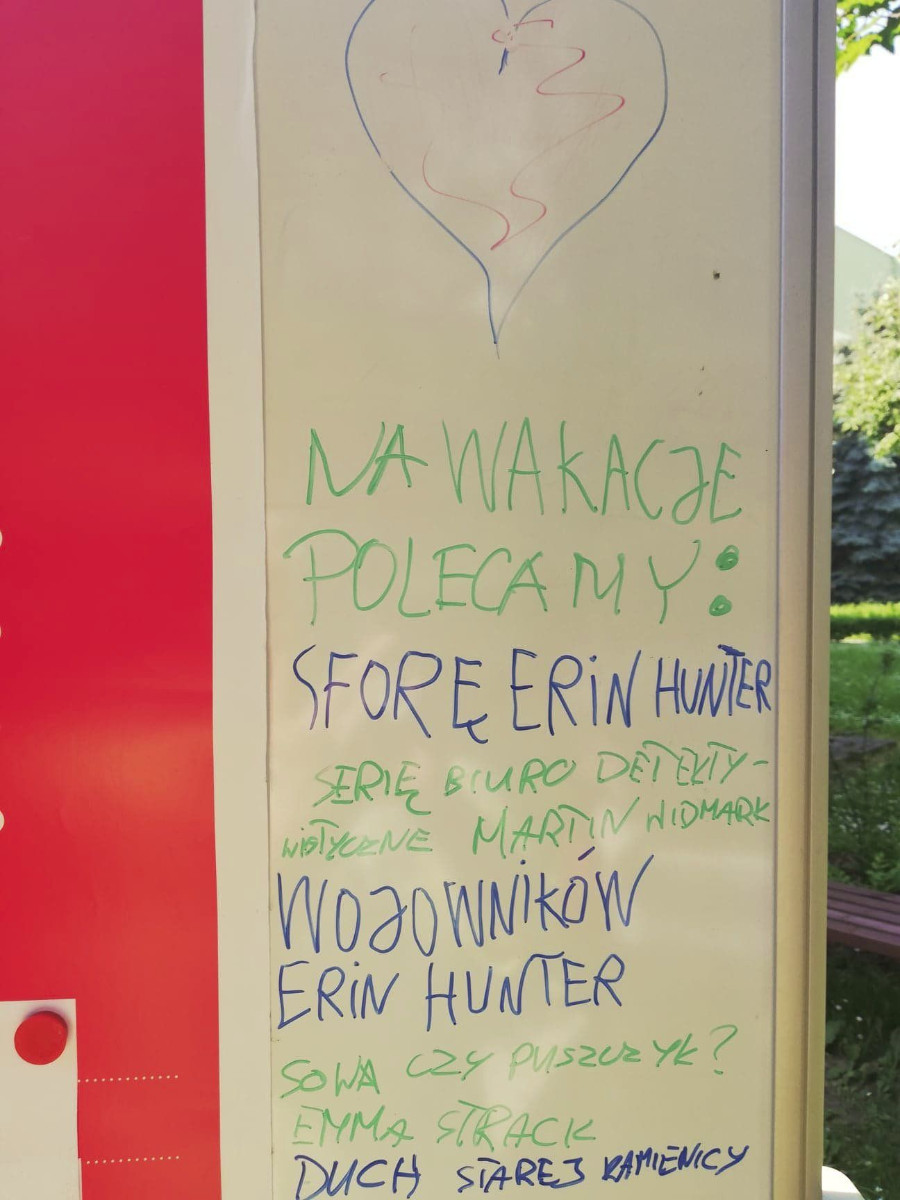 NA WAKACJE
POLECAMY:
SFORĘ ERIN HUNTER
SERIĘ BIURO DETEKTY-
WISTYCZNE MARTIN WIDMARK
WOJOWNIKÓW
ERIN HUNTER
SOWA CZY PUSZCZYK?
EMMA STRACK
DUCH STAREJ KAMIENICY